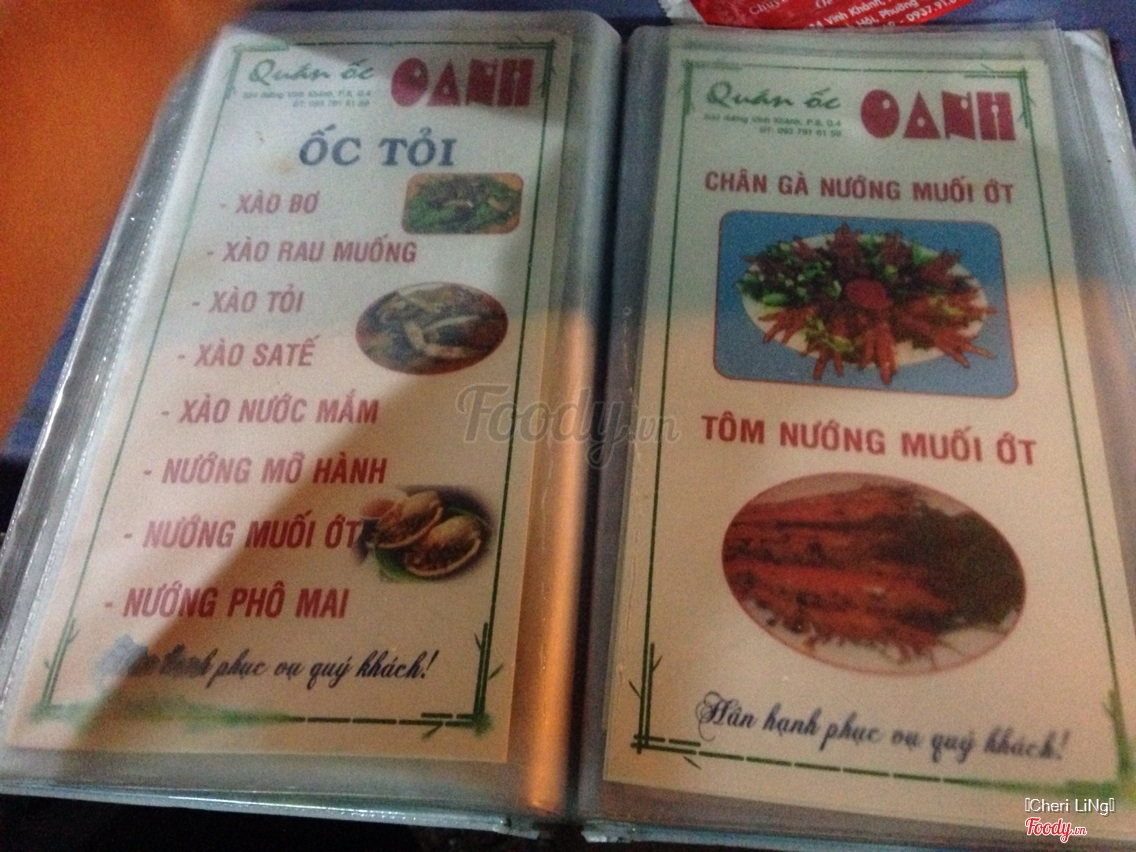 Quán ốc OANH
P.8, Q.4
ỐC TỎI
- XÀO BƠ
- XÀO RAU MUỐNG
- XÀO TỎI
- XÀO SATẾ
- XÀO NƯỚC MẮM
- NƯỚNG MỠ HÀNH
- NƯỚNG MUỐI ỚT
- NƯỚNG PHÔ MAI
hạnh phục vụ quý khách!
Vĩnh Khánh,
Hội, Phường
- 0937.91
Quán ốc OANH
Vĩnh Khánh, P.8, Q.4
CHÂN GÀ NƯỚNG MUỐI ỚT
TÔM NƯỚNG MUỐI ỚT
Hân hạnh phục vụ quý khách!
Foody.vn
Cheri LiNg
Foody.vn